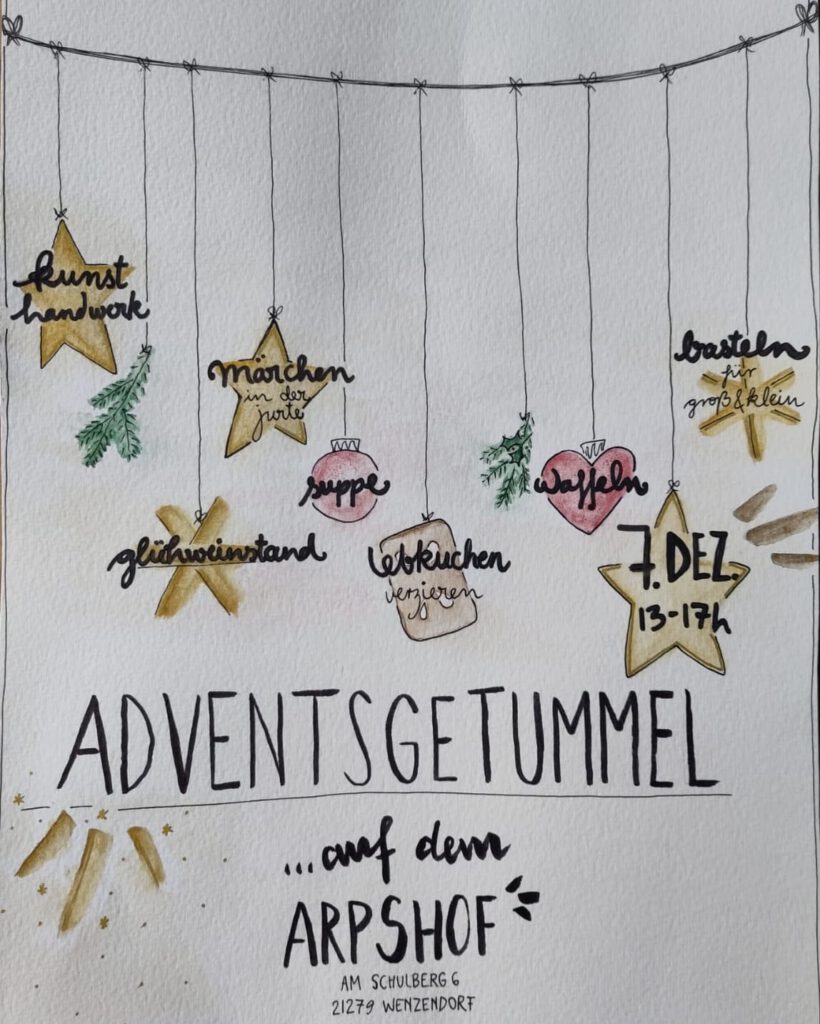 kunst
handwerk
märchen
in der
jurte
basteln
für
groß & klein
suppe
waffeln
glühweinstand
lebkuchen
verzieren
7. DEZ.
13-17h
ADVENTSGETUMMEL
...auf dem
ARPSHOF
AM SCHULBERG 6
21279 WENZENDORF